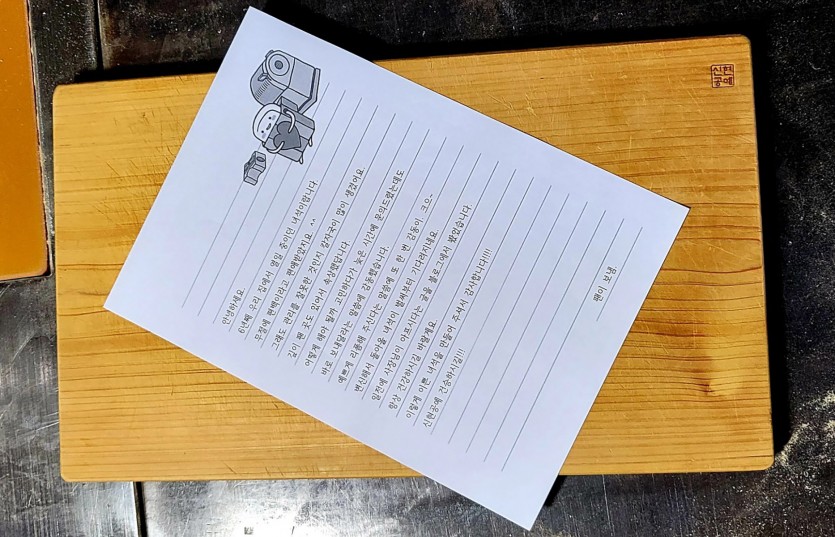 안녕하세요.
6년째 우리 집에서 열일 중이던 녀석이랍니다.
무절에 편백이라고 편애받았지요 ^^
그래도 관리를 잘못한 것인지 칼자국이 많이 생겼어요
깊이 팬 곳도 있어서 속상했답니다
어떻게 해야 될까 고민하다가 늦은 시간에 문의드렸는데도
바로 보내달라는 말씀에 감동했습니다.
예쁘게 리폼해 주신다는 말씀에 또 한 번 감동이 크으~
변신해서 돌아올 녀석이 벌써부터 기다려지네요.
일전에 사장님이 아프시다는 글을 블로그에서 봤었습니다
항상 건강하시길 바랄게요.
이렇게 이쁜 녀석을 만들어 주셔서 감사합니다!!!!
신현공예 건승하시길!!!
팬이 보냄.
신현
공예